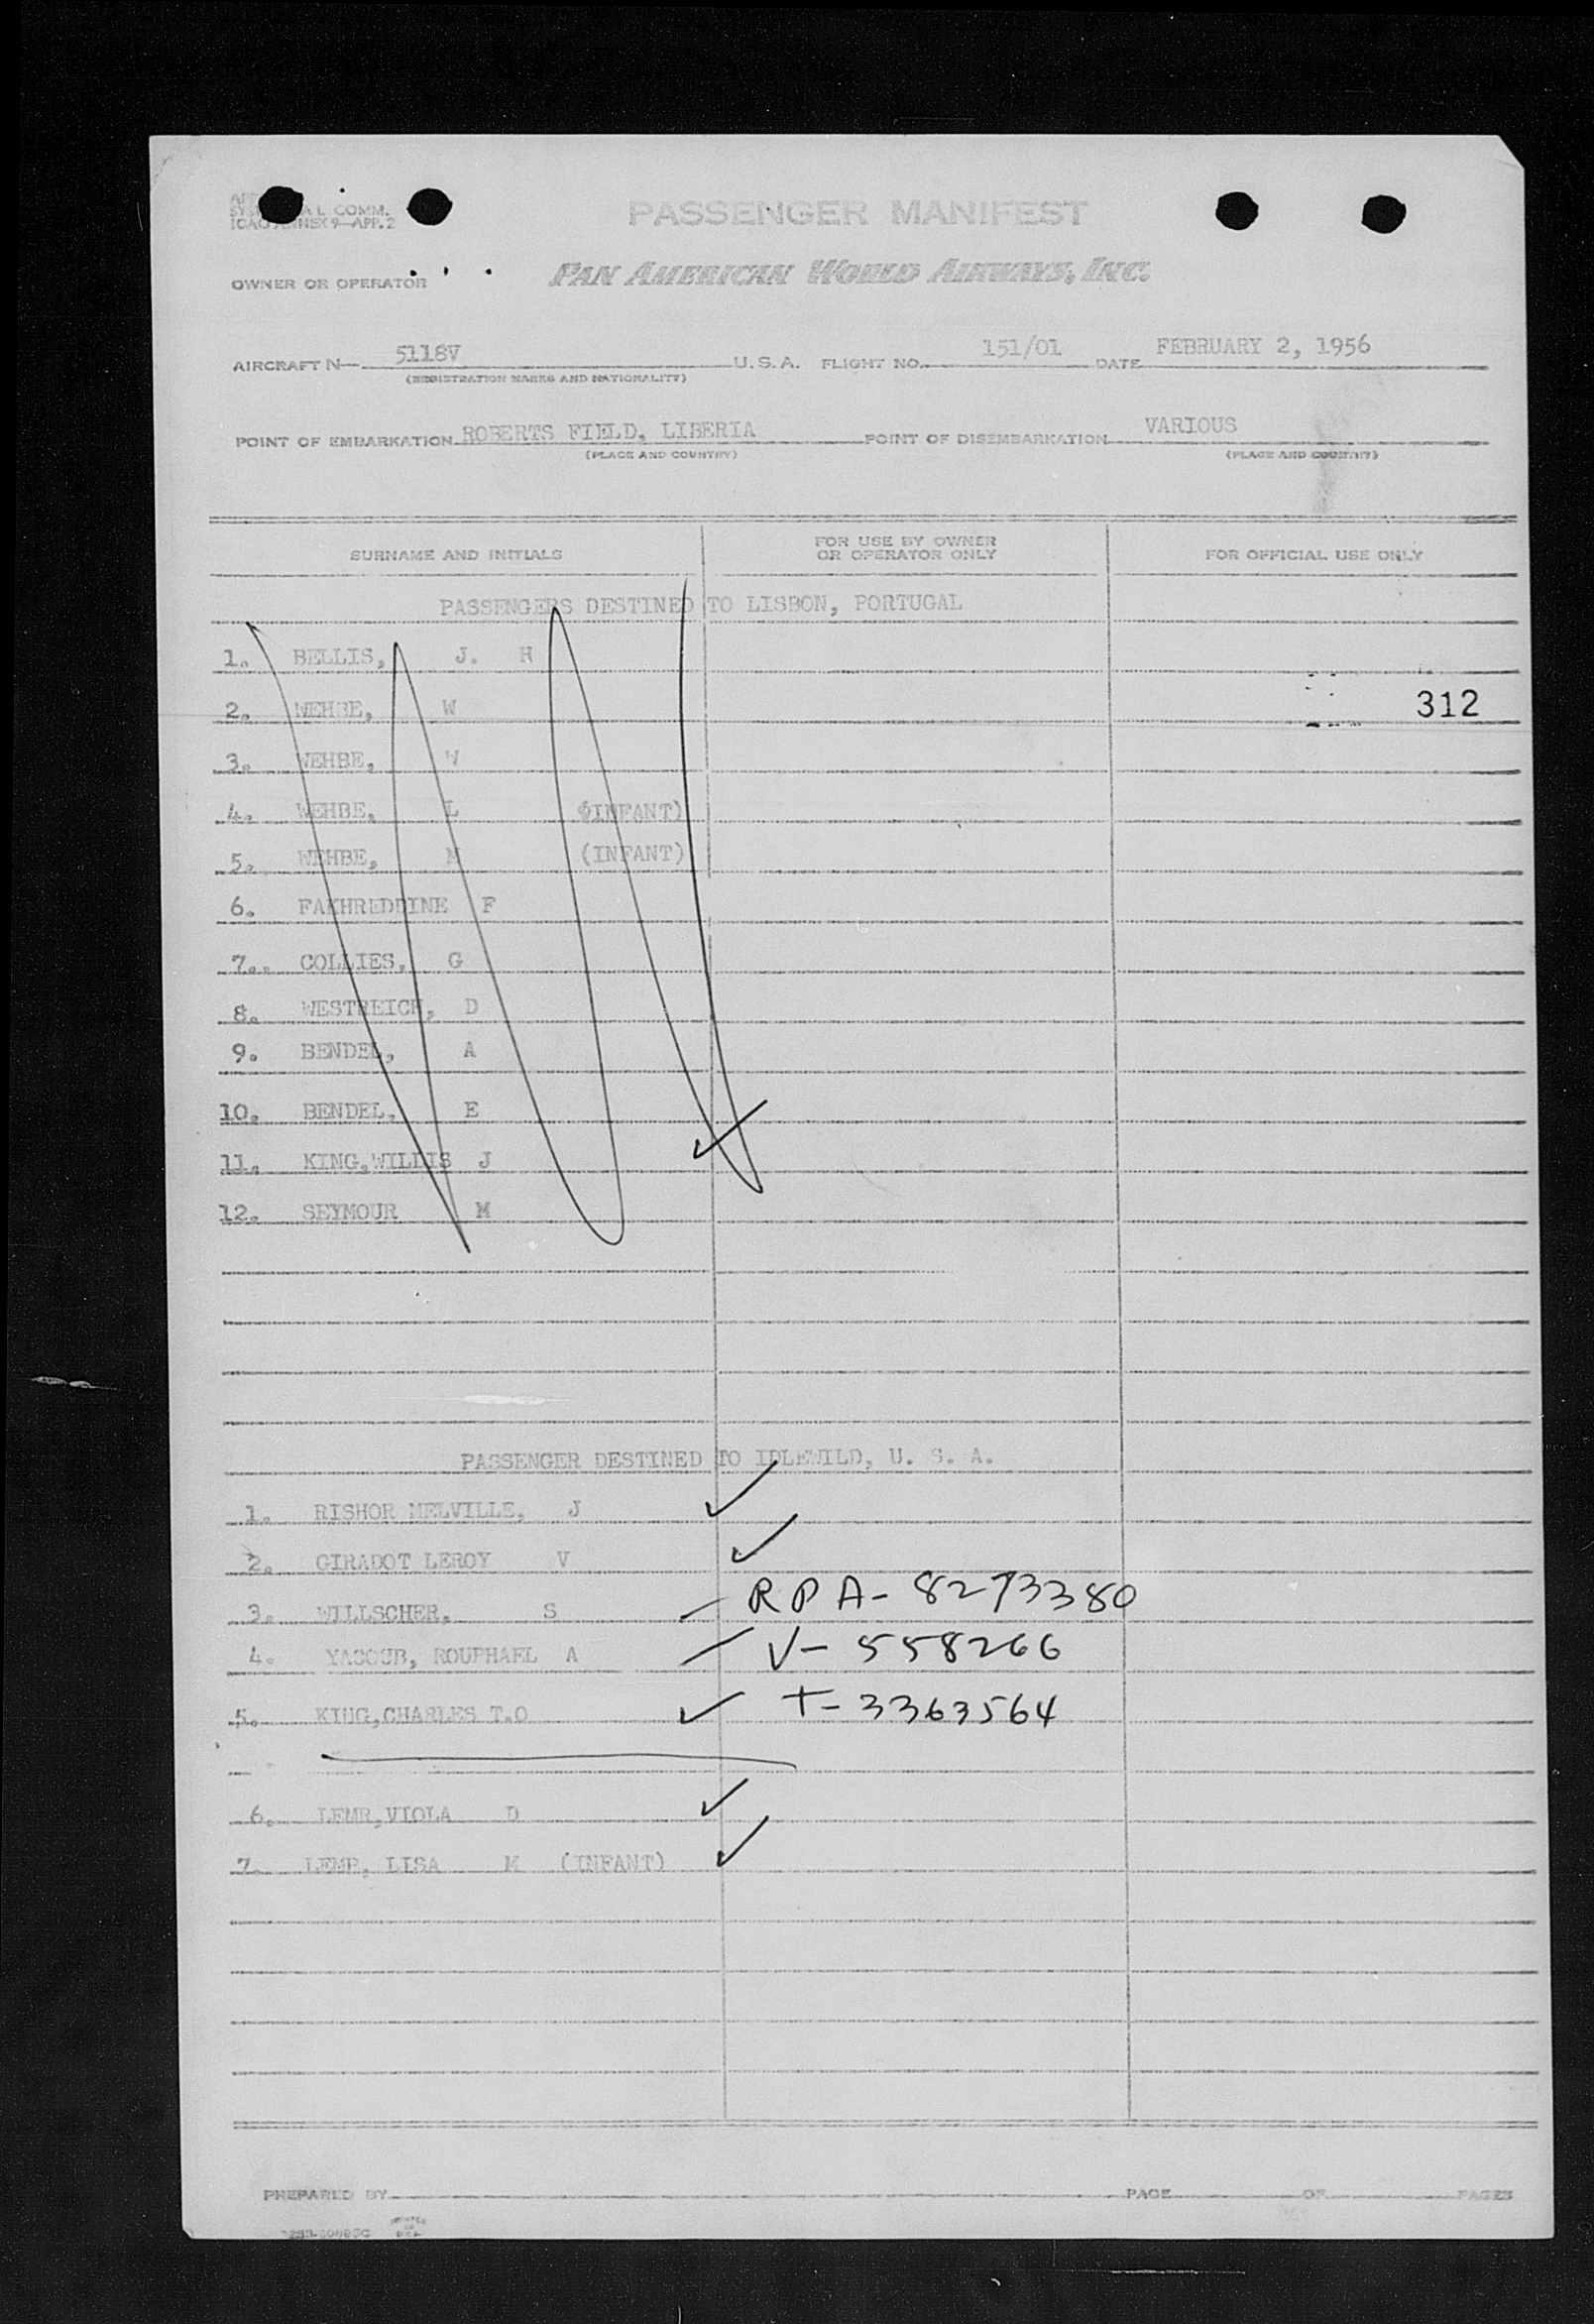 A L COMM.
ICAO ANNEX 9—APP. 2
PASSENGER MANIFEST
OWNER OR OPERATOR PAN AMERICAN WORLD AIRWAYS, INC.
AIRCRAFT N— 5118V U. S. A. FLIGHT NO. 151/01 DATE FEBRUARY 2, 1956
(REGISTRATION MARKS AND NATIONALITY)
POINT OF EMBARKATION ROBERTS FIELD, LIBERIA POINT OF DISEMBARKATION VARIOUS
(PLACE AND COUNTRY) (PLACE AND COUNTRY)
SURNAME AND INITIALS FOR USE BY OWNER OR OPERATOR ONLY FOR OFFICIAL USE ONLY
PASSENGERS DESTINED TO LISBON, PORTUGAL
1. BELLIS, J. H
2. WEHBE, W 312
3. WEHBE, W
4. WEHBE, L (INFANT)
5. WEHBE, M (INFANT)
6. FAKHREDDINE F
7.. COLLIES, G
8. WESTREICH, D
9. BENDEL, A
10. BENDEL, E
11. KING,WILLIS J
12. SEYMOUR M
PASSENGER DESTINED TO IDLEWILD, U. S. A.
1. RISHOR MELVILLE, J
2. GIRADOT LEROY V
3. WILLSCHER, S RPA-8273380
4. YACOUB, ROUPHAEL A V-558266
5. KING,CHARLES T.O T-3363564
6. LEMR,VIOLA D
7. LEMR, LISA M (INFANT)
PREPARED BY PAGE OF PAGES